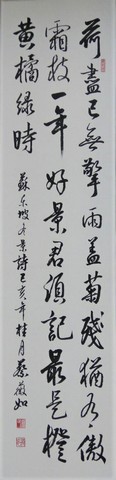 荷盡已無擎雨蓋菊殘猶有傲
霜枝一年好景君須記最是橙
黃橘綠時
蘇東坡冬景詩己亥年桂月蔡薇如